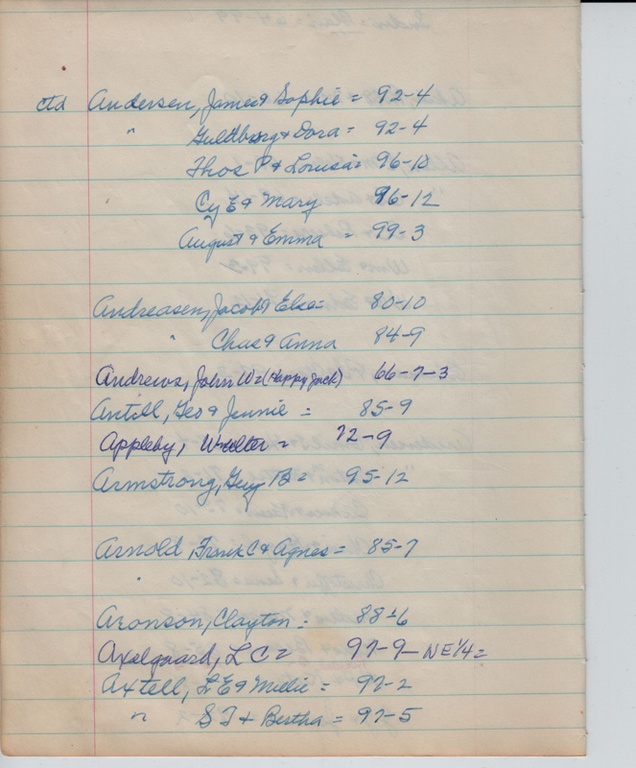 ctd Andersen, James & Sophie = 92-4
" Guldborg & Dora = 92-4
Thos P & Louisa = 96-10
Cy E & Mary 86-12
August & Emma = 99-3
Andreasen, Jacob & Else = 80-10
" Chas & Anna 84-9
Andrews, John W = (Happy Jack) 66-7-3
Antill, Geo & Jennie = 85-9
Appleby, Walter = 72-9
Armstrong, Guy B = 95-12
Arnold, Frank C & Agnes = 85-7
Aronson, Clayton = 88-6
Axelgaard, L C = 97-9- NE 1/4 =
Axtell, L E & Millie = 97-2
" S T & Bertha = 97-5